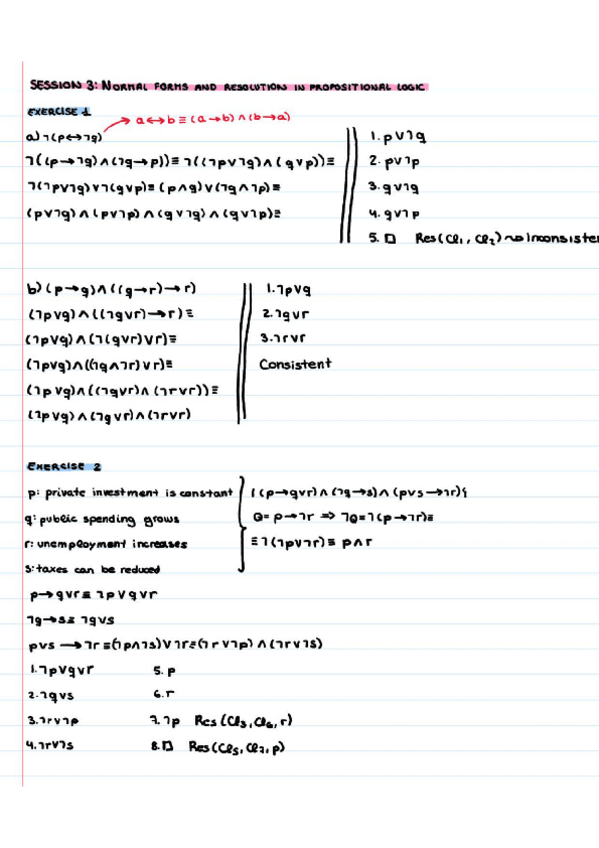 SESSION 3: NORMAL FORMS AND RESOLUTION IN PROPOSITIONAL LOGIC
EXERCISE 1
a↔b≡(a→b)∧(b→a)
a) ¬(p↔¬q)
¬((p→¬q)∧(¬q→p))≡ ¬((¬p∨¬q)∧(q∨p))≡
¬(¬p∨¬q)∨¬(q∨p)≡(p∧q)∨(¬q∧¬p)≡
(p∨¬q)∧(p∨¬p)∧(q∨¬q)∧(q∨¬p)≡
1. p∨¬q
2. p∨¬p
3. q∨¬q
4. q∨¬p
5. □ Res(Cl₁, Cl₂)⇝Inconsisten
b) (p→q)∧((q→r)→r)
(¬p∨q)∧((¬q∨r)→r)≡
(¬p∨q)∧(¬(q∨r)∨r)≡
(¬p∨q)∧((¬q∧¬r)∨r)≡
(¬p∨q)∧((¬q∨r)∧(¬r∨r))≡
(¬p∨q)∧(¬q∨r)∧(¬r∨r)
1. ¬p∨q
2. ¬q∨r
3. ¬r∨r
Consistent
EXERCISE 2
p: private investment is constant
q: public spending grows
r: unemployment increases
s: taxes can be reduced
{(p→q∨r)∧(¬q→s)∧(p∨s→¬r)}
Q= p→¬r ⇒ ¬Q=¬(p→¬r)≡
≡¬(¬p∨¬r)≡ p∧r
p→q∨r≡ ¬p∨q∨r
¬q→s≡ ¬q∨s
p∨s→¬r≡(¬p∧¬s)∨¬r≡(¬r∨¬p)∧(¬r∨¬s)
1. ¬p∨q∨r
2. ¬q∨s
3. ¬r∨¬p
4. ¬r∨¬s
5. p
6. r
7. ¬p Res(Cl₃, Cl₆, r)
8. □ Res(Cl₅, Cl₇, p)